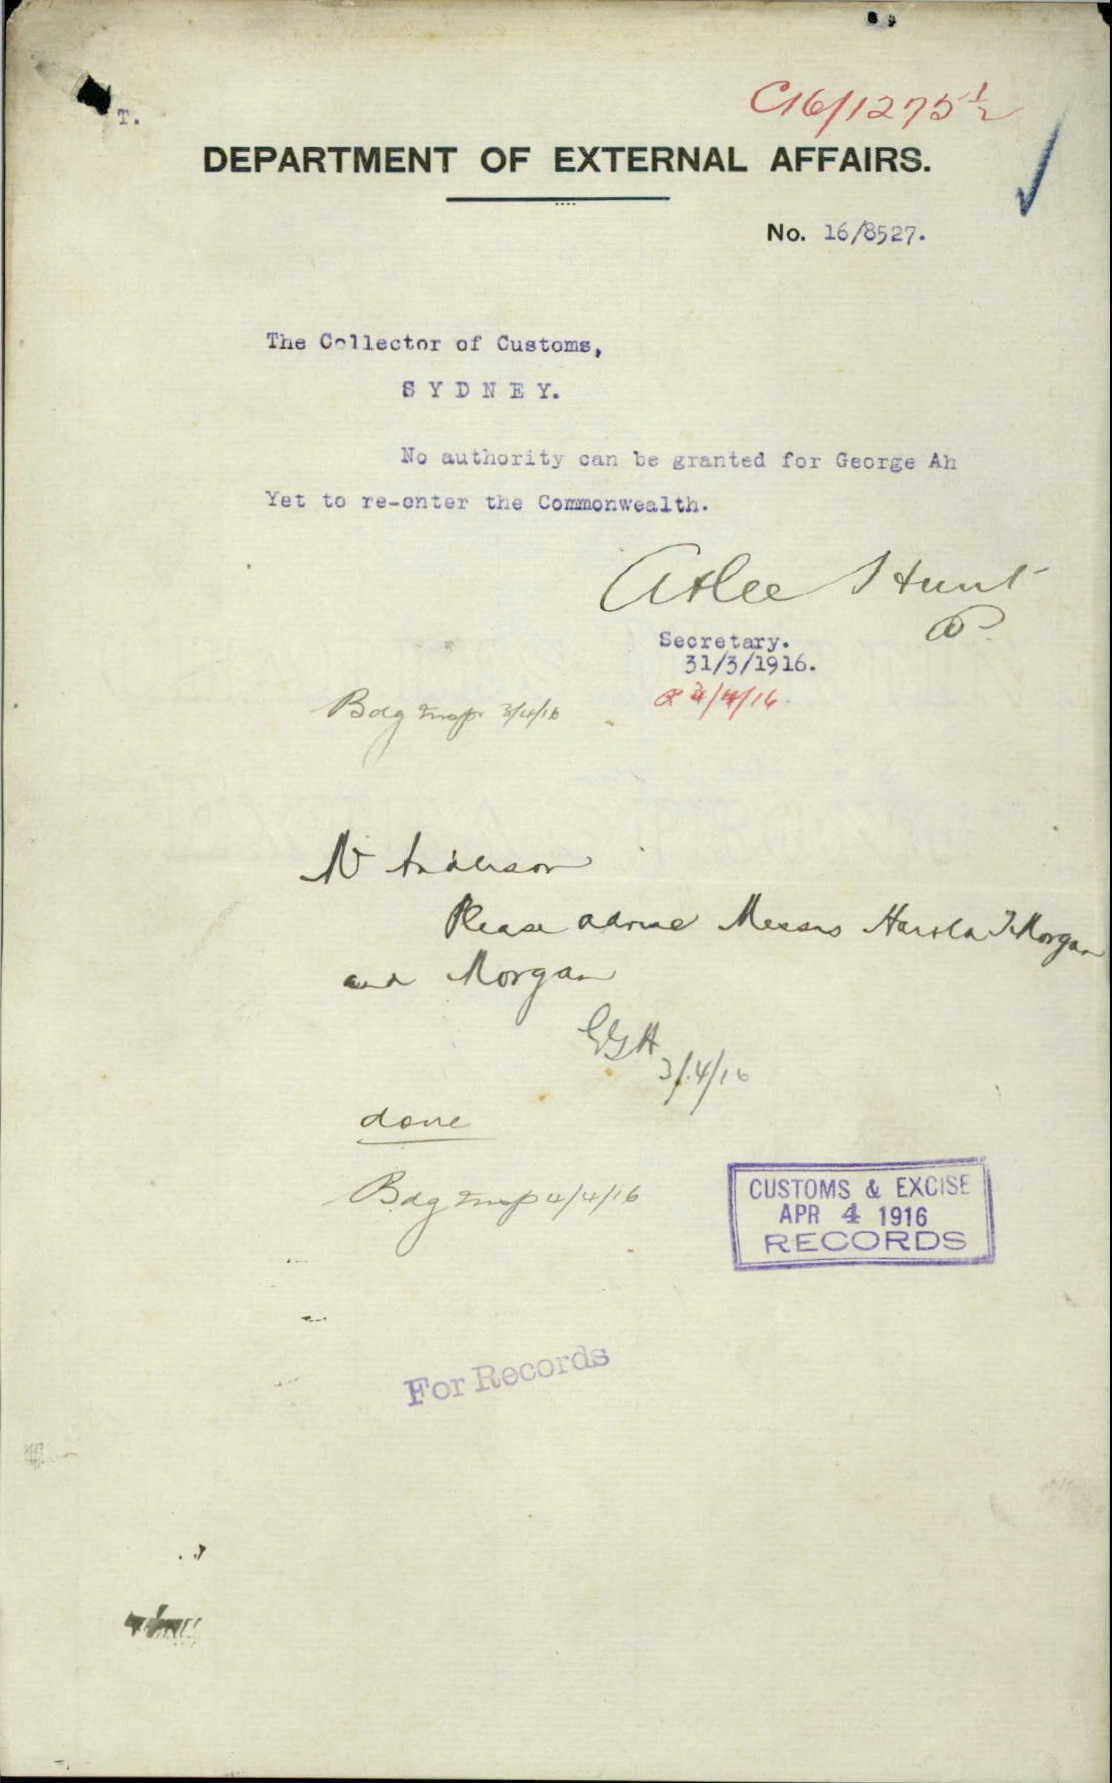 C16/1275½
T.
DEPARTMENT OF EXTERNAL AFFAIRS.
No. 16/8527.
The Collector of Customs,
SYDNEY.
No authority can be granted for George Ah
Yet to re-enter the Commonwealth.
Atlee Hunt
Secretary.
31/3/1916.
/4/16.
Bdg Insp 3/4/16
Mr Anderson
Please advise Messrs Harold T Morgan
and Morgan
3/4/16
done
Bdg Insp 4/4/16
CUSTOMS & EXCISE
APR 4 1916
RECORDS
For Records